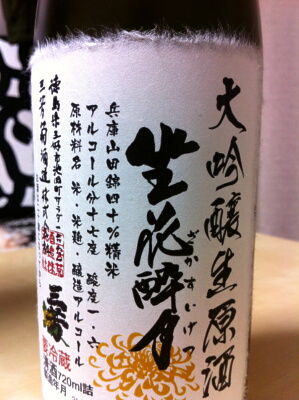 大吟醸生原酒
生花酔月
ざかすいげつ
兵庫山田錦四十%精米
アルコール分十七度 酸度一・六
原材料名 米・米麹・醸造アルコール
徳島県三好市池田町サラダ
三芳菊酒造株式会社
三芳菊
要冷蔵
清酒720ml詰
製造年月